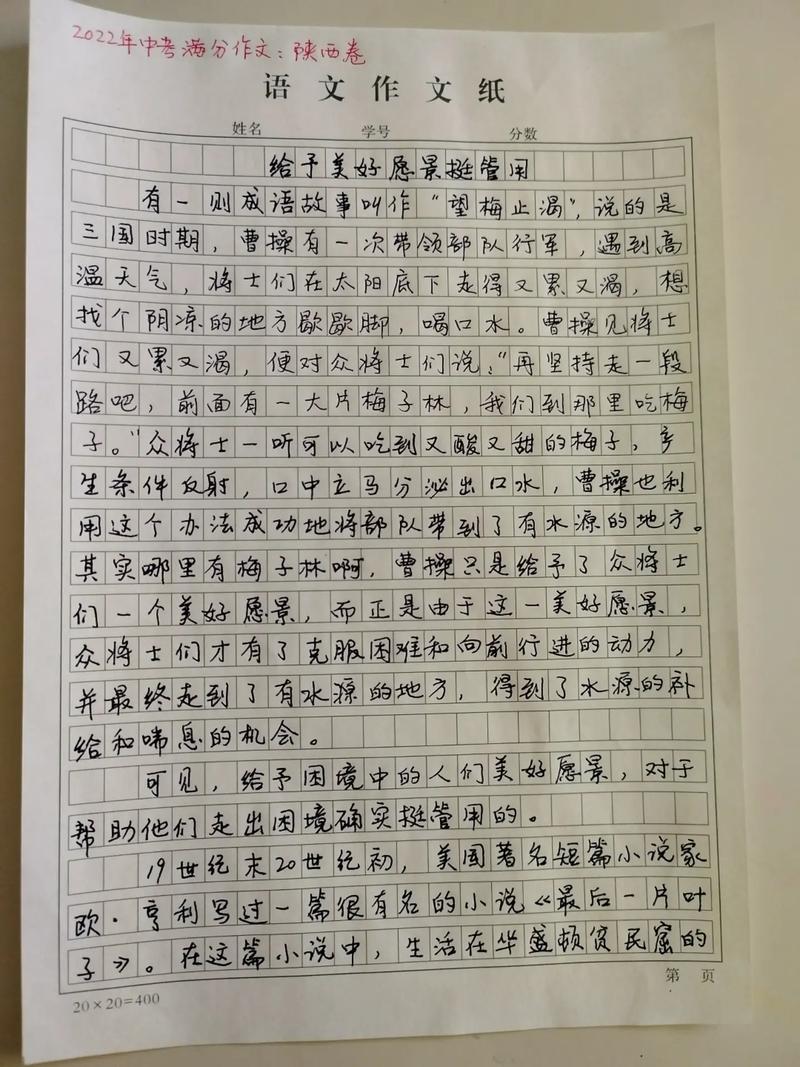 2022年中考满分作文：陕西卷
语文作文纸
姓名 学号 分数
给予美好愿景挺管用
有一则成语故事叫作“望梅止渴”，说的是
三国时期，曹操有一次带领部队行军，遇到高
温天气，将士们在太阳底下走得又累又渴，想
找个阴凉的地方歇歇脚，喝口水。曹操见将士
们又累又渴，便对众将士们说：“再坚持走一段
路吧，前面有一大片梅子林，我们到那里吃梅
子。”众将士一听可以吃到又酸又甜的梅子，产
生条件反射，口中立马分泌出口水，曹操也利
用这个办法成功地将部队带到了有水源的地方。
其实哪里有梅子林啊，曹操只是给予了众将士
们一个美好愿景，而正是由于这一美好愿景，
众将士们才有了克服困难和向前行进的动力，
并最终走到了有水源的地方，得到了水源的补
给和喘息的机会。
可见，给予困境中的人们美好愿景，对于
帮助他们走出困境确实挺管用的。
19世纪末20世纪初，美国著名短篇小说家
欧·亨利写过一篇很有名的小说《最后一片叶
子》。在这篇小说中，生活在华盛顿贫民窟的
第 页
20×20=400